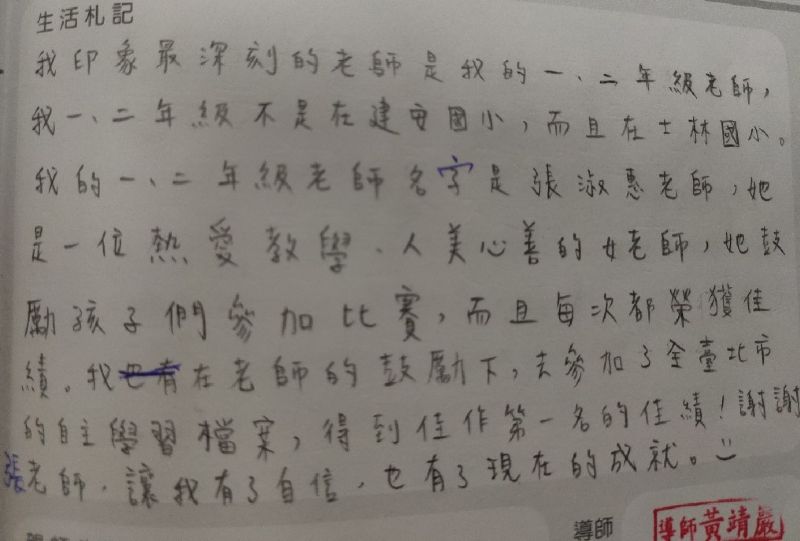 生活札記
我印象最深刻的老師是我的一、二年級老師，
我一、二年級不是在建安國小，而且在士林國小。
我的一、二年級老師名字是張淑惠老師，她
是一位熱愛教學、人美心善的女老師，她鼓
勵孩子們參加比賽，而且每次都榮獲佳
績。我也有在老師的鼓勵下，去參加了全臺北市
的自主學習檔案，得到佳作第一名的佳績！謝謝
張老師，讓我有了自信，也有了現在的成就。
導師
導師黃靖嚴